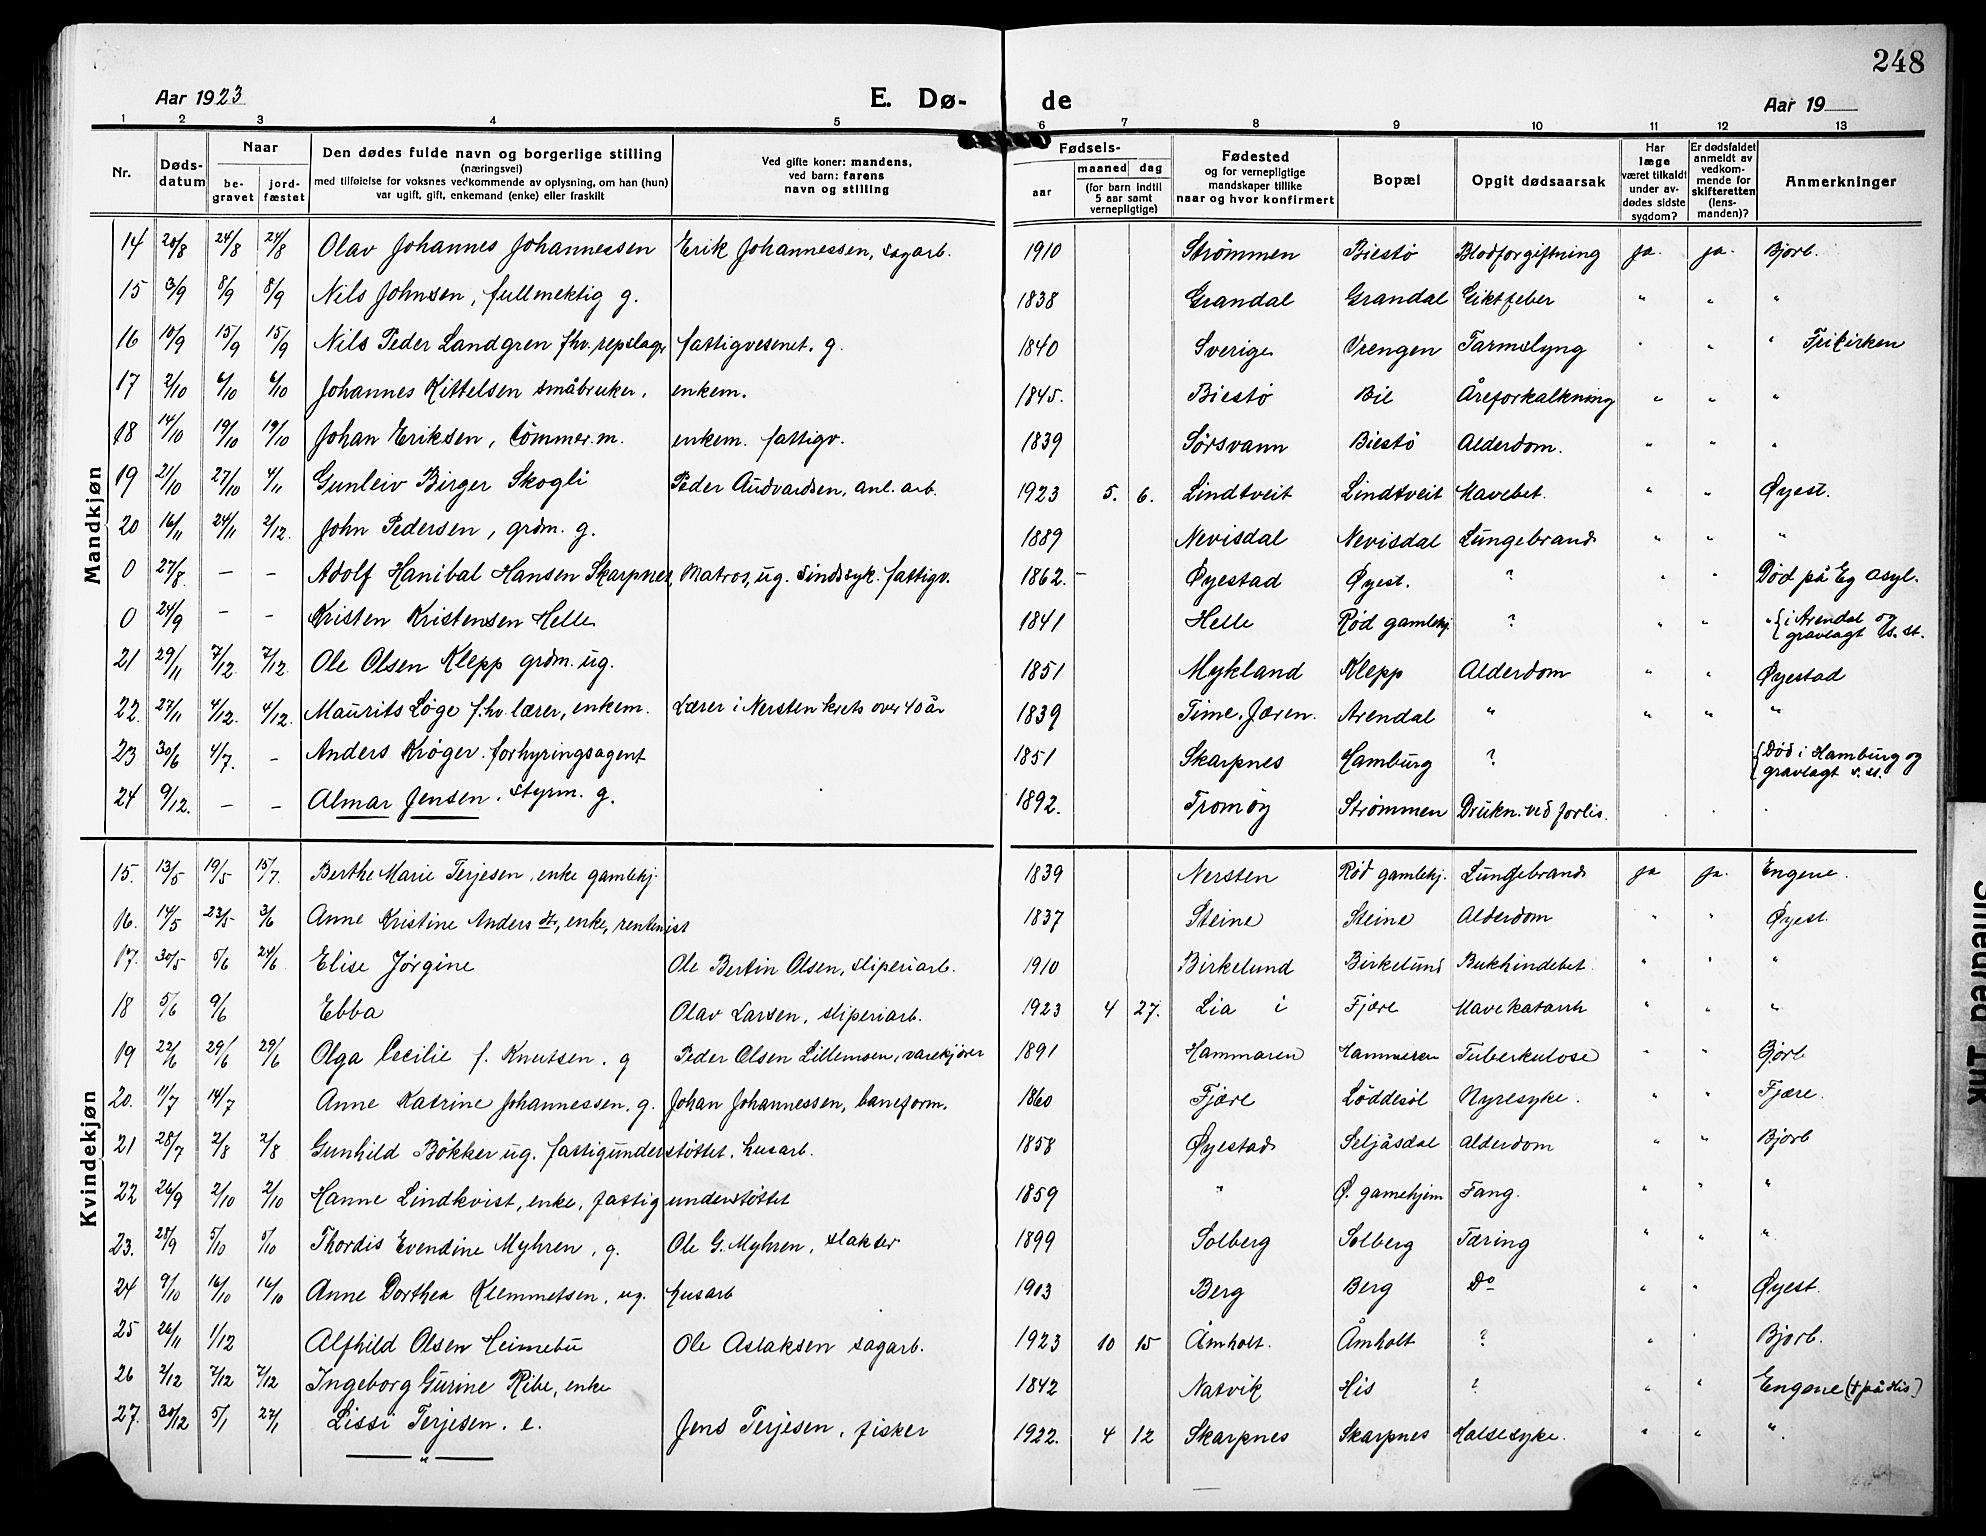 248
Aar 1923 E. Dø- de Aar 19
1 2 3 4 5 6 7 8 9 10 11 12 13
Nr. Dødsdatum Naar begravet jordfæstet Den dødes fulde navn og borgerlige stilling (næringsvei) med tilføielse for voksnes vedkommende av oplysning, om han (hun) var ugift, gift, enkemand (enke) eller fraskilt Ved gifte koner: mandens, ved barn: farens navn og stilling Fødsels- aar maaned dag (for barn indtil 5 aar samt vernepligtige) Fødested og for vernepligtige mandskaper tillike naar og hvor konfirmert Bopæl Opgit dødsaarsak Har læge været tilkaldt under avdødes sidste sygdom? Er dødsfaldet anmeldt av vedkommende for skifteretten (lensmanden)? Anmerkninger
Mandkjøn
14 20/8 24/8 24/8 Olav Johannes Johannessen Erik Johannessen, sagarb. 1910 Strømmen Biestø Blodforgiftning ja. ja. Bjorb.
15 3/9 8/9 8/9 Nils Johnsen, fullmektig g. 1838 Grandal Grandal Giktfeber " " "
16 10/9 15/9 15/9 Nils Peder Landgren fhv. repslager fattigvesenet. g. 1840 Sverige Vrengen Tarmslyng " " " Frikirken
17 2/10 6/10 6/10 Johannes Kittelsen småbruker, enkem. 1845. Biestø Bie Åreforkalkning " " "
18 14/10 19/10 19/10 Johan Eriksen, tømmer.m. enkem. fattigv. 1839 Sørsvann Biestø Alderdom. " " "
19 21/10 27/10 4/11 Gunleiv Birger Skogli Peder Audvardsen, anl. arb. 1923 5. 6. Lindtveit Lindtveit Mavebet. " " Øyest.
20 16/11 24/11 2/12. John Pedersen, grdm. g. 1889 Nevisdal Nevisdal Lungebrand " " "
0 27/8. - - Adolf Hanibal Hansen Skarpnes Matros, ug. sindssyk. fattigv. 1862. - Øyestad Øyest. ? " " Død på Eg asyl.
0 24/9 - - Kristen Kristensen Helle 1841 Helle Rød gamlehj. ? " " " { i Arendal og gravlagt s. st.
21 29/11 7/12 7/12. Ole Olsen Klepp grdm. ug. 1851 Mykland Klepp Alderdom " " Øyestad
22. 27/11 4/12. 4/12. Maurits Løge f.hv. lærer, enkem. Lærer i Nersten krets over 40 år 1839 Time. Jæren. Arendal " " " "
23 30/6 4/7. - Anders Krøger. forhyringsagent 1851 Skarpnes Hamburg ? { Død i Hamburg og gravlagt s. st.
24 9/12. - - Almar Jensen. styrm. g. 1892. Tromøy Strømmen Drukn. ved forlis.
Kvindekjøn
15. 13/5 19/5 15/7. Berthe Marie Terjesen, enke gamlehj. 1839 Nersten Rød gamlehj. Lungebrand ja ja. Engene.
16. 14/5 23/5 3/6 Anne Kristine Andersdtr, enke, rentenist 1837 Steine Steine Alderdom " " Øyest.
17. 30/5 5/6 24/6 Elise Jørgine Ole Bertin Olsen, sliperiarb. 1910 Birkelund Birkelund Bukhindebet. " " "
18 5/6 9/6 Ebba Olav Larsen, sliperiarb. 1923 4 27. Lia i Fjære Mavekatarrh " " "
19 22/6 29/6 29/6 Olga Cecilie f. Knutsen. g Peder Olsen Lillemsen, varekjører 1891 Hammaren Hammeren Tuberkulose " " Bjorb
20. 11/7 14/7 Anne Katrine Johannessen. g. Johan Johannessen, baneform. 1860 Fjære Løddesøl Nyresyke. " " Fjære.
21 28/7 2/8 2/8 Gunhild Bøkker ug. fattigunderstøttet. husarb. 1858 Øyestad Seljåsdal Alderdom " " Bjorb
22 26/9 2/10 2/10 Hanne Lindkvist, enke, fattig understøttet 1859 " Ø. gamehjem Fang. " " "
23. 28/9 5/10 5/10 Thordis Evendine Myhren, g. Ole G. Myhren, slakter 1899 Solberg Solberg Tæring " " "
24 9/10 16/10 16/10 Anne Dorthea Klemmetsen, ug. husarb 1903 Berg Berg Do " " Øyest.
25 26/11 1/12 Alfhild Olsen Heimebu Ole Aslaksen sagarb. 1923 10 15 Åmholt. Åmholt ? " " Bjorb.
26 2/12 7/12 7/12 Ingeborg Gurine Ribe, enke 1842 Natvik His ? " " Engene († på His)
27. 30/12 5/1 27/1 Lissi Terjesen. e. Jens Terjesen, fisker 1922. 4 12 Skarpnes Skarpnes Halsesyke. " " "